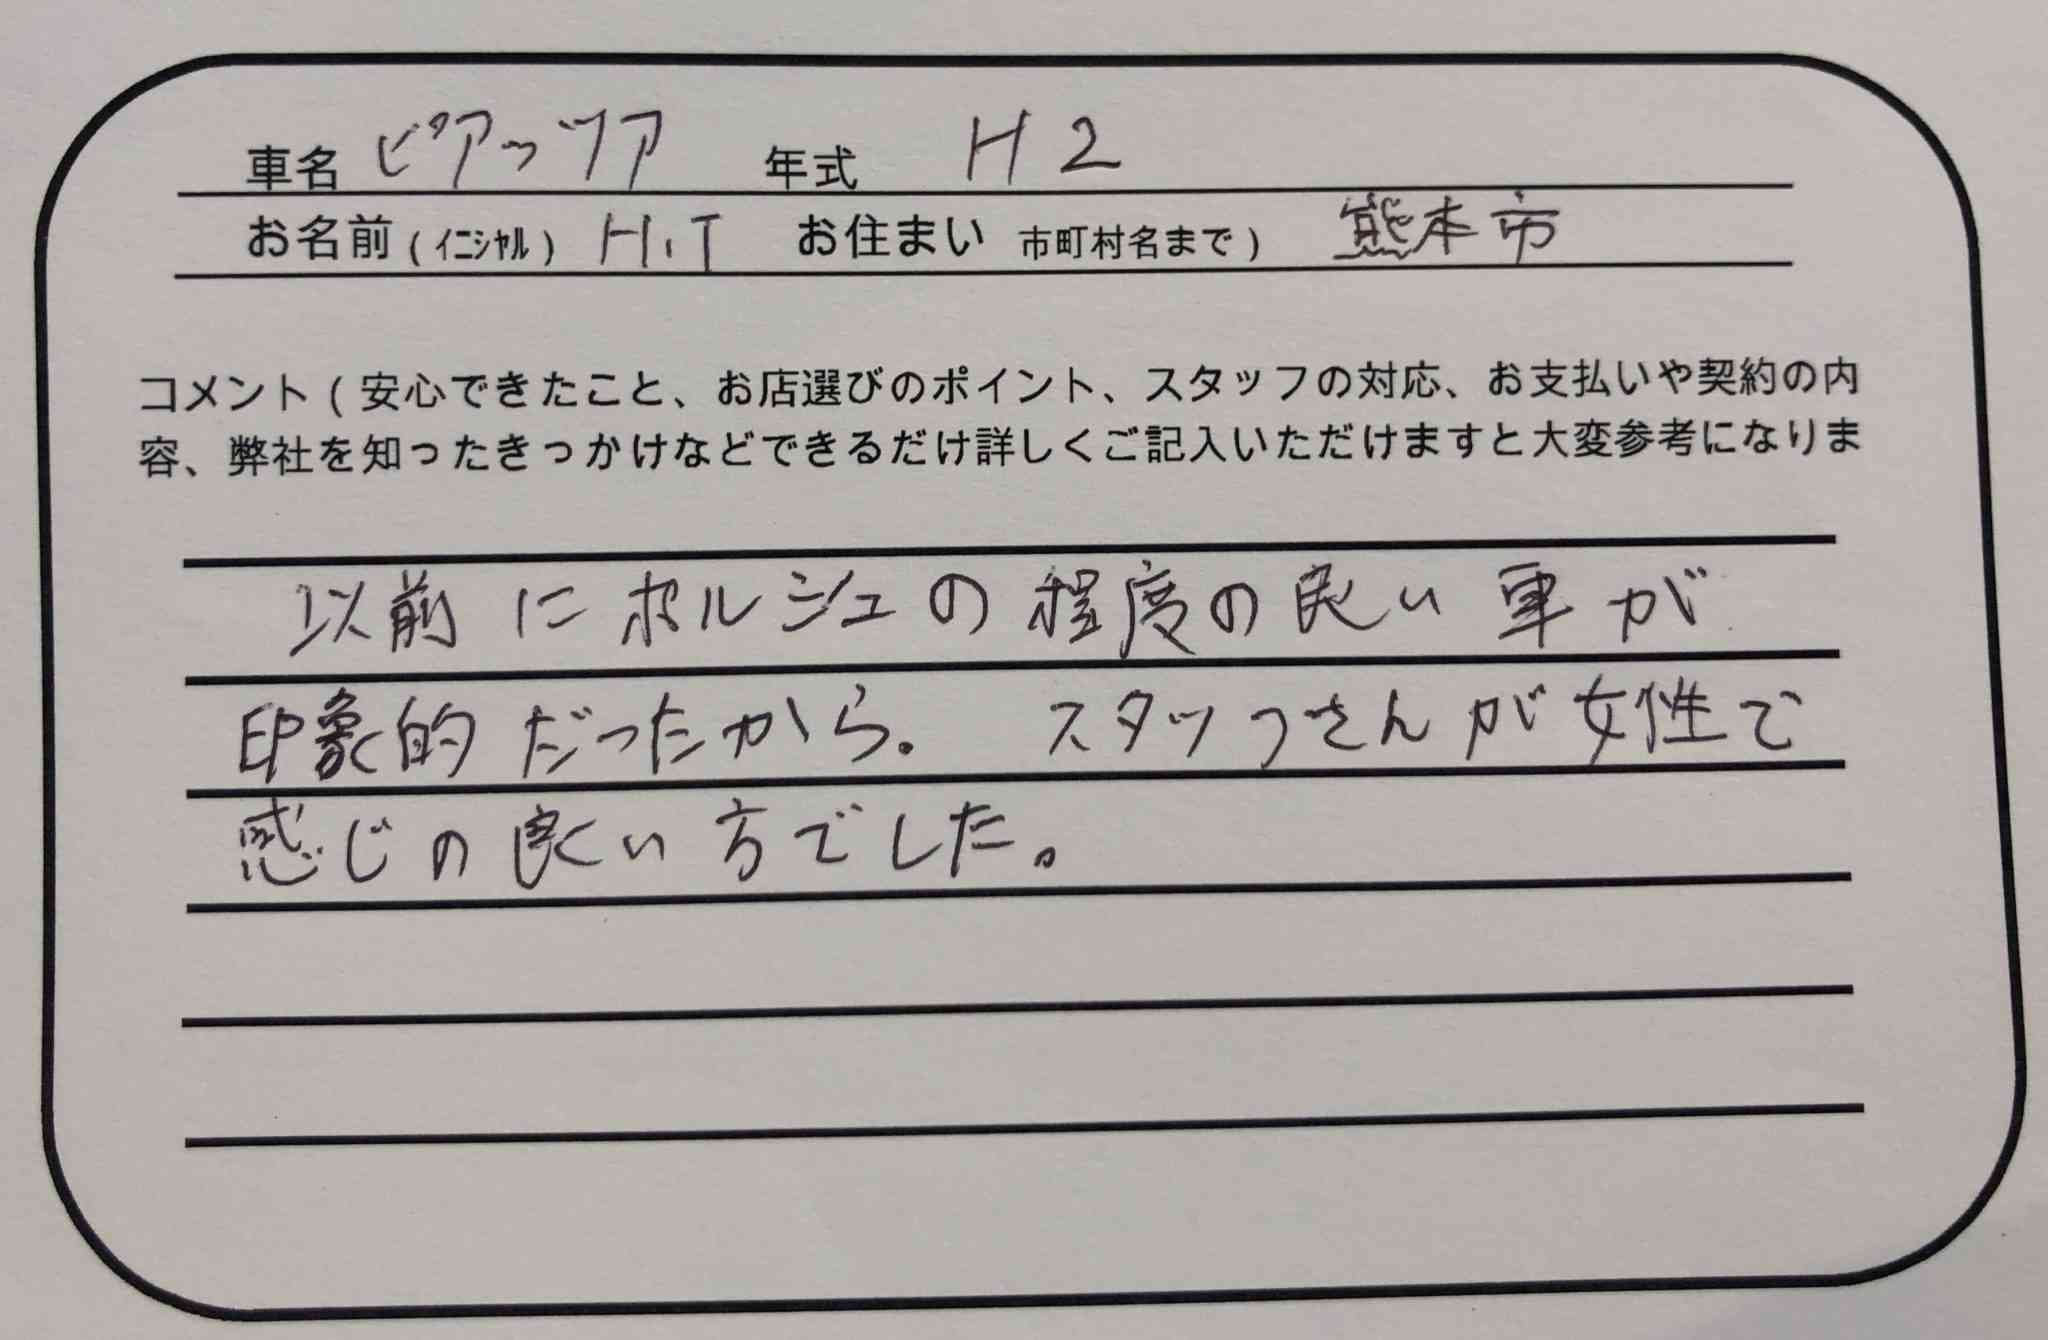 車名 ピアッツア 年式 H2
お名前(イニシャル) H.T お住まい 市町村名まで) 熊本市
コメント(安心できたこと、お店選びのポイント、スタッフの対応、お支払いや契約の内
容、弊社を知ったきっかけなどできるだけ詳しくご記入いただけますと大変参考になりま
以前にポルシェの程度の良い車が
印象的だったから。 スタッフさんが女性で
感じの良い方でした。